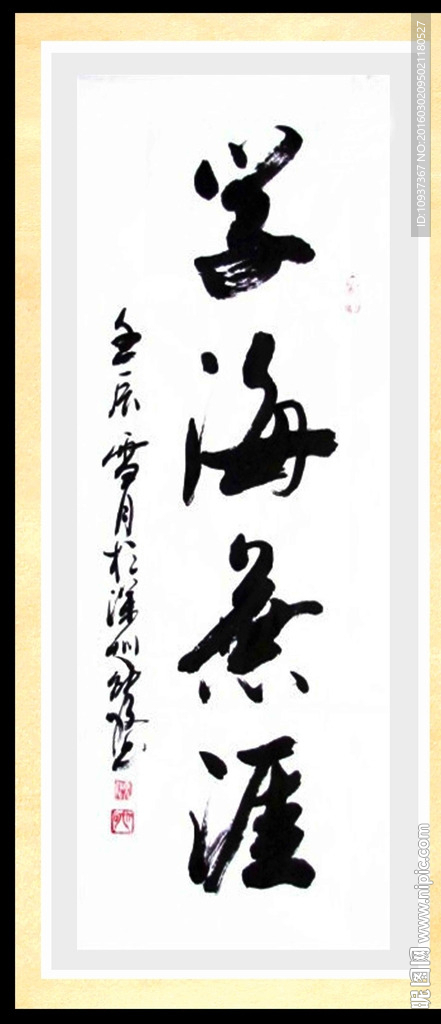 学海無涯
壬辰雪月於深圳
ID:10937367 NO:20160302095021180527
昵图网 www.nipic.com